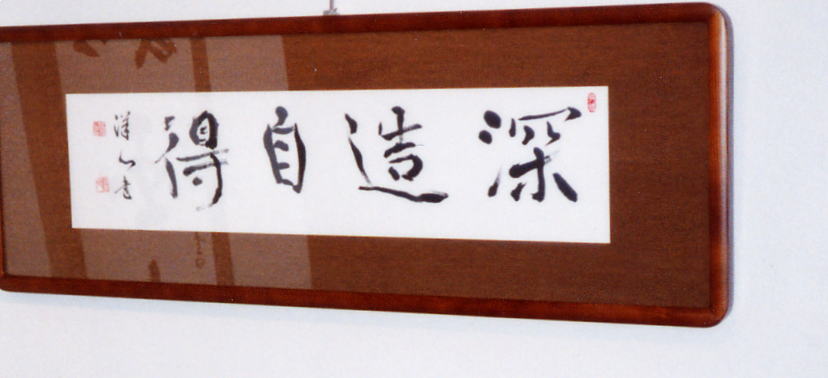 深造自得
洋山書